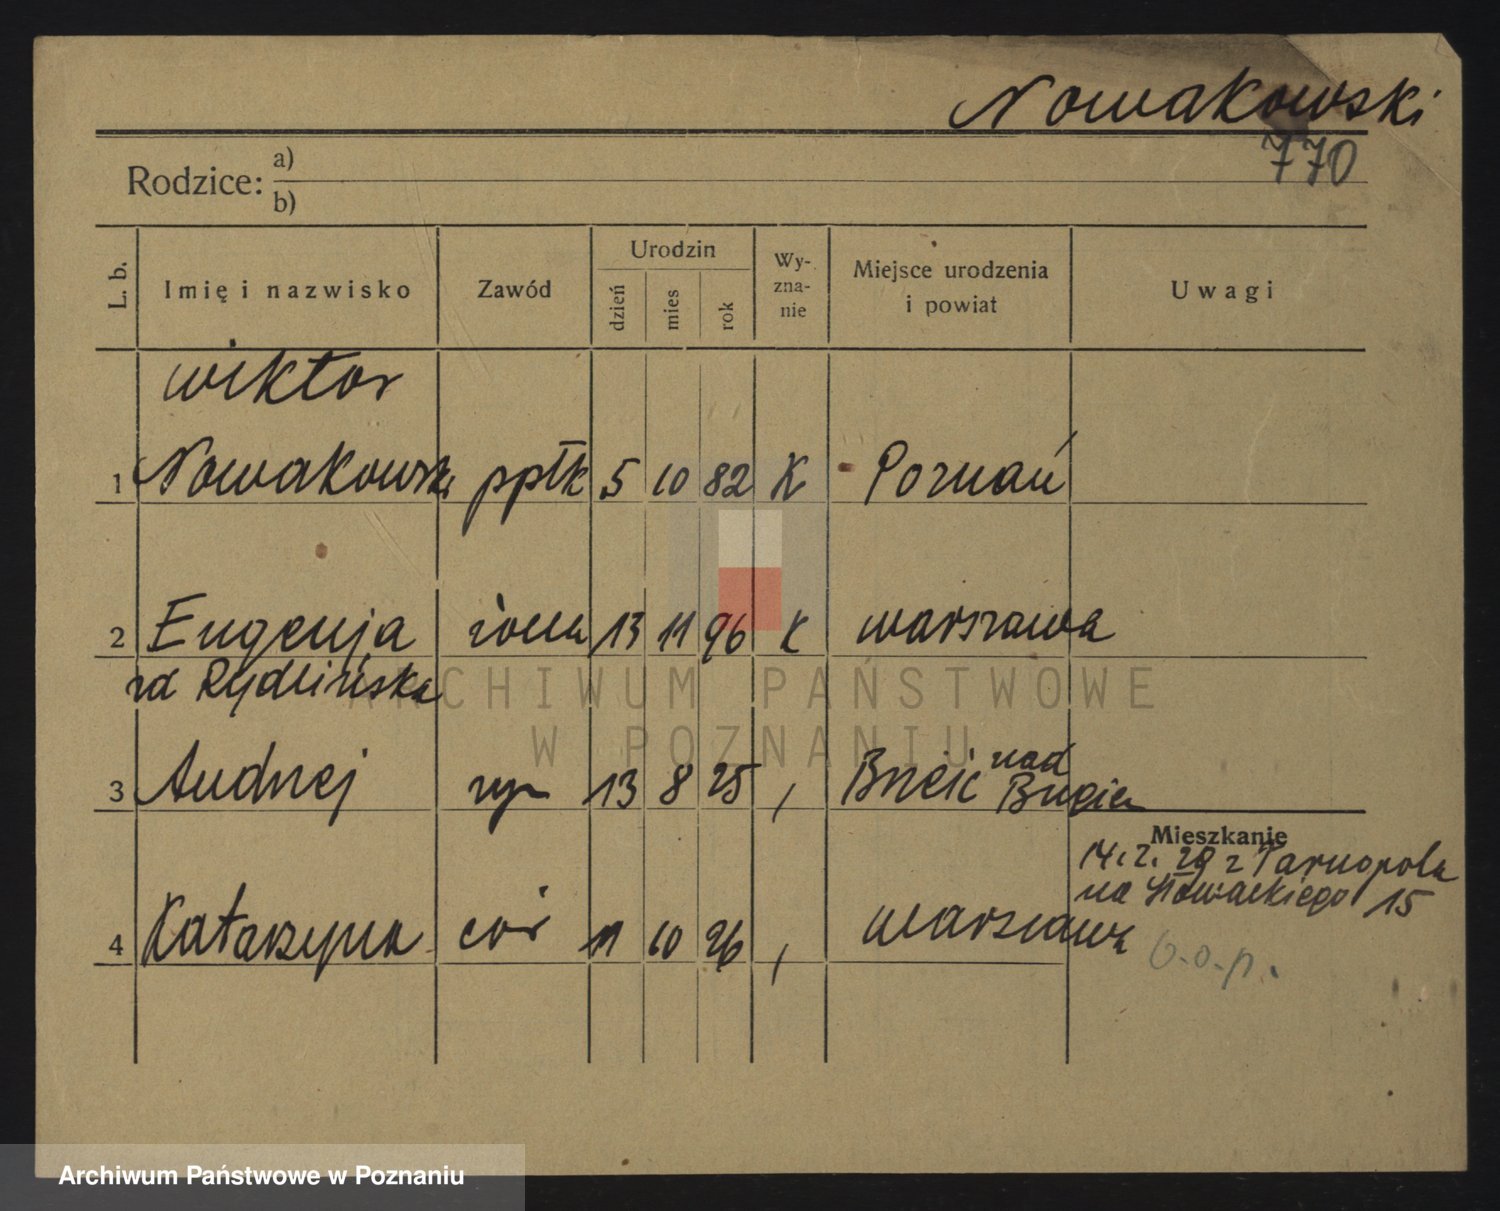 Nowakowski
770
Rodzice: a)
b)
L. b. Imię i nazwisko Zawód Urodzin dzień mies rok Wy-zna-nie Miejsce urodzenia i powiat Uwagi
Wiktor
1 Nowakowski ppłk 5 10 82 K Poznań
2 Eugenja żona 13 11 96 K Warszawa
zd Rydlińska
3 Andrzej syn 13 8 25 , Brześć nad Bugiem
Mieszkanie
14.2.29 z Tarnopola
na Słowackiego 15
4 Katarzyna cór 11 10 26 , Warszawa
b.o.p.
ARCHIWUM PAŃSTWOWE
W POZNANIU
Archiwum Państwowe w Poznaniu